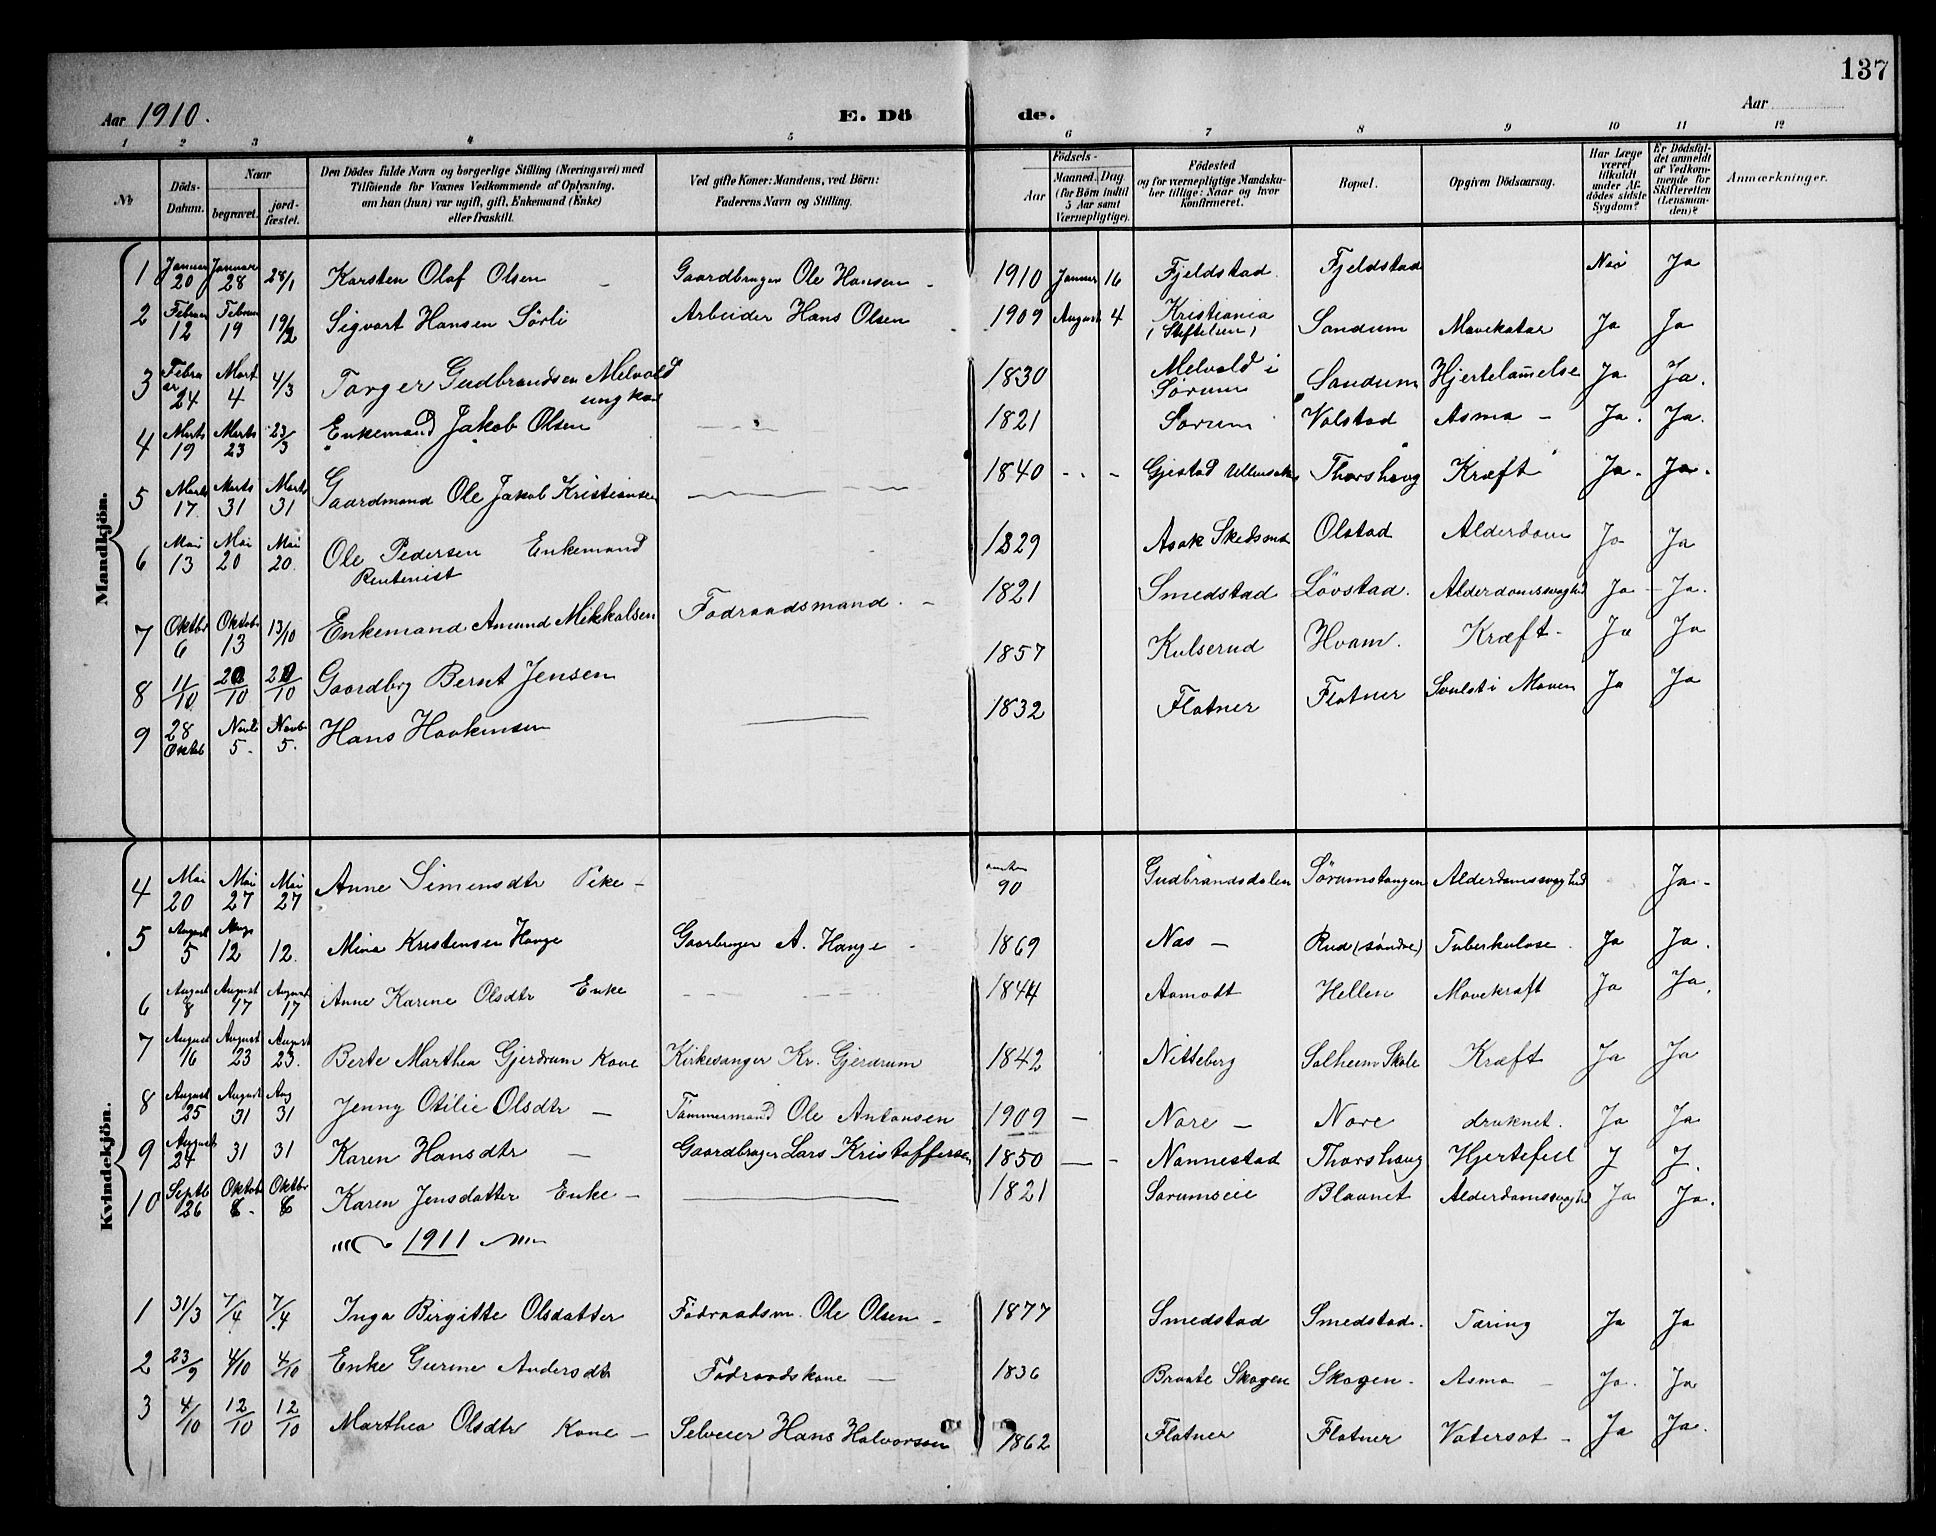 137
Aar 1910.
E. Dö de.
Aar
1 2 3 4 5 6 7 8 9 10 11 12
No
Döds-Datum.
Naar
begravet.
jord-fæstet.
Den Dödes fulde Navn og borgerlige Stilling (Næringsvei) med
Tilföiende for Voxnes Vedkommende af Oplysning,
om han (hun) var ugift, gift, Enkemand (Enke)
eller fraskilt.
Ved gifte Koner: Mandens, ved Börn:
Faderens Navn og Stilling.
Födsels-
Aar
Maaned. Dag
(for Börn indtil
5 Aar samt
Værnepligtige).
Födested
og for værnepligtige Mandska-
ber tillige: Naar og hvor
konfirmeret.
Bopæl.
Opgiven Dödsaarsag.
Har Læge
været
tilkaldt
under Af-
dödes sidste
Sygdom?
Er Dödsfal-
det anmeldt
af Vedkom-
mende for
Skifteretten
(Lensman-
den)?
Anmærkninger.
Mandkjön.
1 Januar 20 Januar 28 28/1 Karsten Olaf Olsen Gaardbruger Ole Hansen 1910 Januar 16 Fjeldstad Fjeldstad Nei Ja
2 Februar 12 Februar 19 19/2 Sigvart Hansen Sörli Arbeider Hans Olsen 1909 August 4 Kristiania (Stiftelsen) Sandum Mavekatar Ja Ja
3 Februar 24 Mart 4 4/3 Torger Gudbrandsen Melvold ungkar 1830 Melvold i Sørum Sandum Hjertelammelse Ja Ja.
4 Marts 19 Marts 23 23/3 Enkemand Jakob Olsen 1821 Sørum Valstad Asma – Ja. Ja.
5 Marts 17. Marts 31 Marts 31 Gaardmand Ole Jakob Kristiansen 1840 Gjestad Ullensaker Thorshaug Kræft Ja. Ja.
6 Mai 13 Mai 20 Mai 20. Ole Pedersen Enkemand Rentenist 1829 Asak Skedsmo Olstad Alderdom Ja Ja
7 Oktbr 6 Oktob 13 13/10 Enkemand Amund Mikkalsen Fodraadsmand. 1821 Smedstad Lövstad. Alderdomssvaghed Ja – Ja.
8 11/10 20/10 20/10 Gaardbrg Bernt Jensen 1857 Kulserud Hvam. Kræft – Ja Ja
9 28 Oktob Novb 5. Novb 5. Hans Haakensen 1832 Flatner Flatner Svulst i Maven Ja Ja
Kvindekjön.
4 Mai 20 Mai 27 Mai 27 Anne Simensdtr Pike – 90 Gudbrandsdalen Sörumstangen Alderdomssvaghed Ja –
5 August 5 Aug 12 12. Mina Kristensen Hauge Gaarbruger A. Hauge 1869 Næs – Rud (söndre) Tuberkulose. Ja Ja.
6 August 8 August 17 August 17 Anne Karine Olsdtr Enke 1844 Aamodt Hellen Mavekræft Ja Ja.
7 August 16 August 23 August 23. Berte Marthea Gjerdrum Kone Kirkesanger Kr. Gjerdrum 1842 Nitteberg Solheim Skole Kræft Ja Ja
8 August 25 August 31 Aug 31 Jenny Otilie Olsdtr – Tömmermand Ole Antonsen 1909 – Nore – Nore druknet. Ja Ja
9 August 24 31 31 Karen Hansdtr – Gaardbruger Lars Kristoffersen 1850 Nannestad Thorshaug Hjertefeil J J.
10 Septb 26 Oktob 6. Oktbr 6 Karen Jensdatter Enke – 1821 Sørumseie Blaanet Alderdomssvaghed Ja Ja.
1911
1 31/3 7/4 7/4 Inga Birgitte Olsdatter Födraadsm. Ole Olsen – 1877 Smedstad Smedstad. Tæring Ja Ja
2 23/9 4/10 4/10 Enke Gurine Andersdtr Födraadskone – 1836 Braate Skogen Skogen. Asma – Ja. Ja
3 4/10 12/10 12/10 Marthea Olsdtr Kone – Selveier Hans Halvorssen 1862 Flatner Flatner Vatersot – Ja Ja.